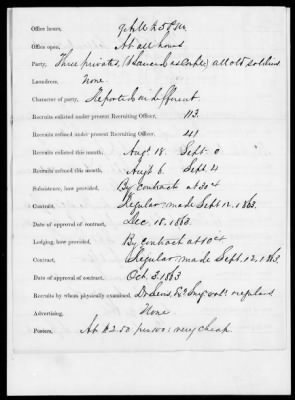 Office hours, 9 A.M. to 5 P.M.
Office open, At all hours
Party, Three privates, (1 Lance as Corpl) all old soldiers
Laundress, None.
Character of party, Reported indifferent.
Recruits enlisted under present Recruiting Officer, 113.
Recruits refused under present Recruiting Officer, 41
Recruits enlisted this month, Augt 18. Sept. 0
Recruits refused this month, Augt 6. Sept. 21
Subsistence, how provided, By contract at 30¢
Contract, Regular made Sept. 12, 1863.
Date of approval of contract, Dec. 18. 1863.
Lodging, how provided, By contract at 10¢
Contract, Regular made Sept. 12, 1863.
Date of approval of contract, Oct. 3. 1863
Recruits by whom physically examined, Dr. regulars
Advertising, None
Posters, At $2.50 per 100: very cheap.